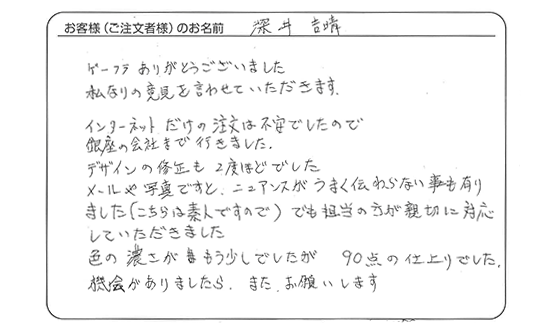 お客様（ご注文者様）のお名前 深井 吉晴
ゲーフラ ありがとうございました
私なりの意見を言わせていただきます.
インターネット だけの注文は不安でしたので
銀座の会社まで行きました.
デザインの修正も 2度ほどでした
メールや写真ですと、ニュアンスがうまく伝わらない事も有り
ました（こちらは素人ですので）でも担当の方が親切に対応
していただきました
色の 濃さが もう少しでしたが 90点の仕上りでした.
機会がありましたら. また お願いします